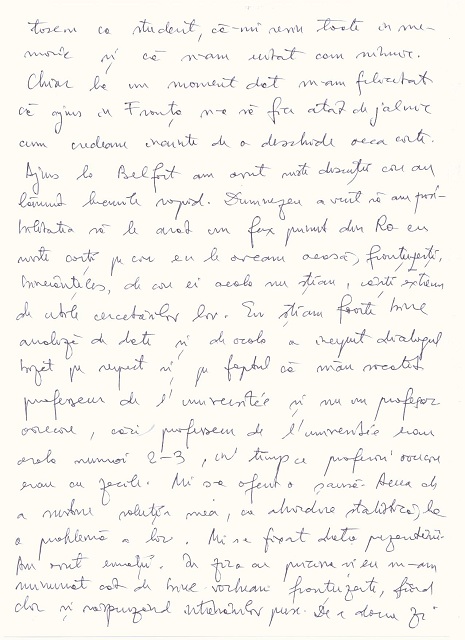 ca student, că-mi revin toate în me-
morie și că n-am uitat cam nimic.
Chiar la un moment dat m-am felicitat
că ajuns în Franța n-o să fiu atât de jalnic
cum credeam înainte de a deschide acea carte.
Ajuns la Belfort am avut niște discuții care au
lămurit lucrurile rapid. Dumnezeu a vrut să am posi-
bilitatea să le arăt un fax primit din Ro cu
niște cărți pe care eu le aveam acasă, franțuzești,
bineînțeles, de care ei acolo nu știau, cărți extrem
de utile cercetărilor lor. Eu știam foarte bine
analiză de date și de acolo a început dialogul
bazat pe respect și pe faptul că m-au socotit
professeur de l'université și nu un profesor
oarecare, căci professeur de l'université erau
acolo numai 2-3, în timp ce profesori oarecare
erau cu zecile. Mi s-a oferit o șansă. Aceea de
a susține soluția mea, ca abordare statistică, la
o problemă a lor. Mi s-a fixat data prezentării.
Am avut emoții. În fața au pricina și eu m-am
minunat cât de bine vorbeam franțuzește, fiind
clar și răspunzând întrebărilor puse. De a doua zi